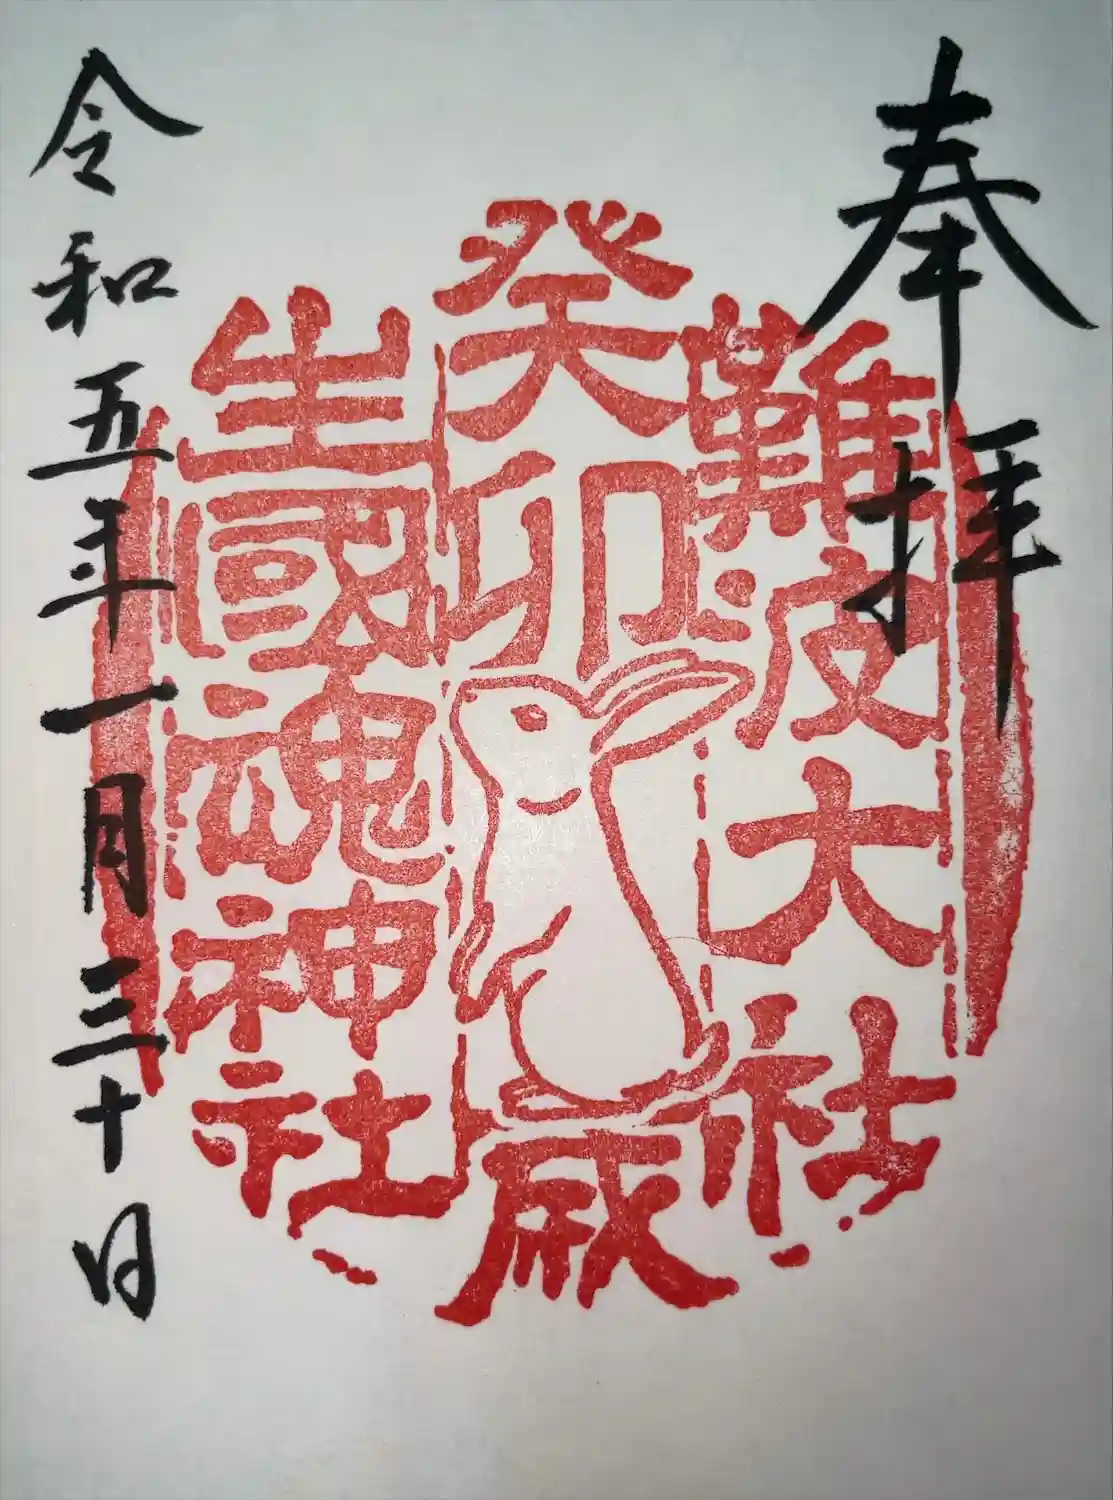 奉拝
難波大社
癸卯歳
生國魂神社
令和五年一月三十日